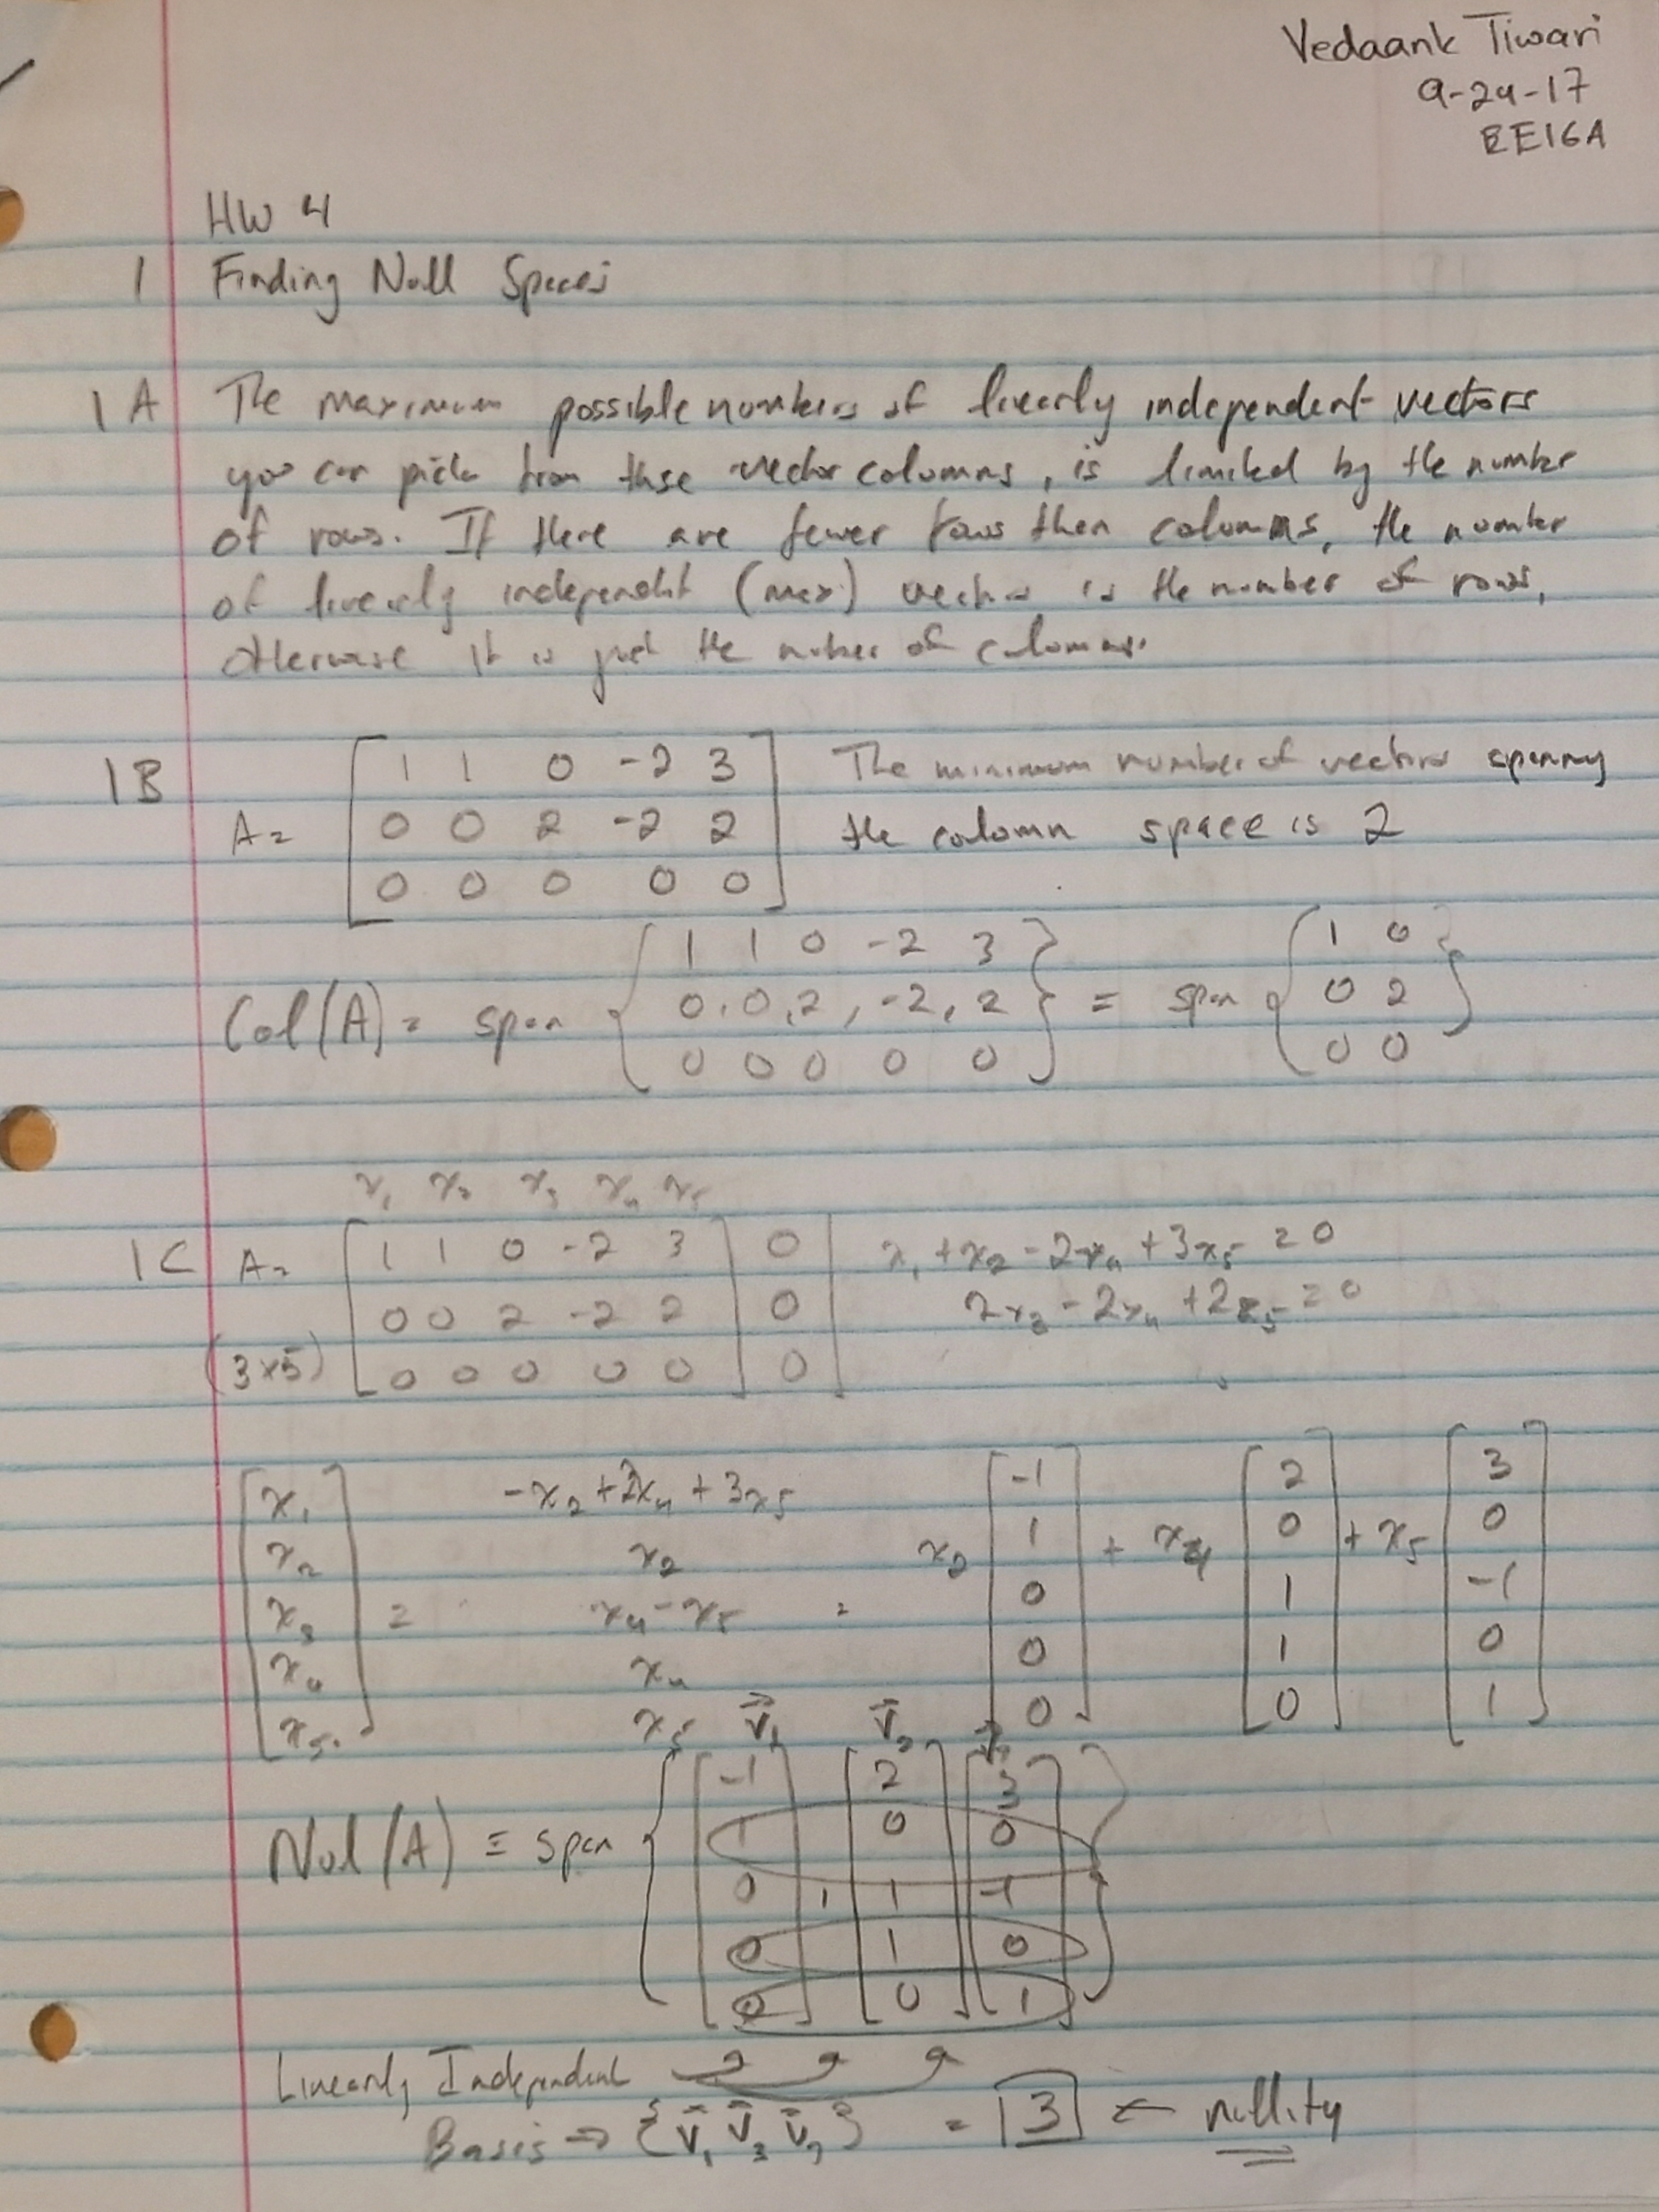 Vedaank Tiwari
9-24-17
EE16A
HW 4
1 Finding Null Spaces
1A The maximum possible numbers of linearly independent vectors
you can pick from these vector columns, is limited by the number
of rows. If there are fewer rows then columns, the number
of linearly independent (max) vectors is the number of rows,
otherwise it is just the number of columns.
1B A = [ 1 1 0 -2 3 The minimum number of vectors spanning
0 0 2 -2 2 the column space is 2
0 0 0 0 0 ]
Col(A) = span { 1 1 0 -2 3 } = span { 1 0 }
0, 0, 2, -2, 2 0 2
0 0 0 0 0 0 0
x₁ x₂ x₃ x₄ x₅
1C A = [ 1 1 0 -2 3 | 0 x₁ + x₂ - 2x₄ + 3x₅ = 0
0 0 2 -2 2 | 0 2x₃ - 2x₄ + 2x₅ = 0
(3x5) 0 0 0 0 0 | 0 ]
x₁ -x₂ + 2x₄ + 3x₅ -1 2 3
x₂ x₂ x₂ 1 + x₄ 0 + x₅ 0
x₃ = x₄ - x₅ = 0 1 -1
x₄ x₄ 0 1 0
x₅ x₅ 0 0 1
v⃗₁ v⃗₂ v⃗₃
-1 2 3
Nul(A) = span { 1 0 0 }
0 , 1 -1
0 1 0
0 0 1
Linearly Independent
Basis ⇒ {v⃗₁ v⃗₃ v⃗₂} = 3 ← nullity